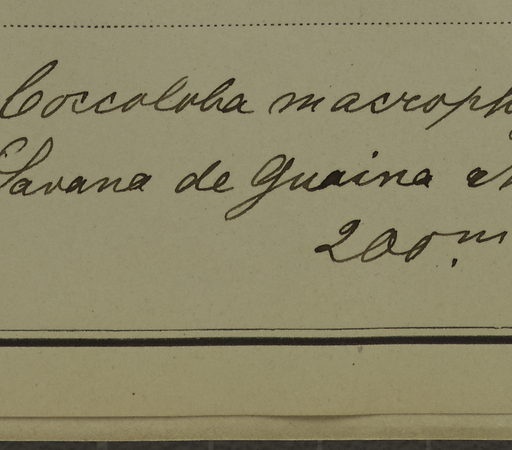 Coccoloba macroph
Savana de Guaina
200.m